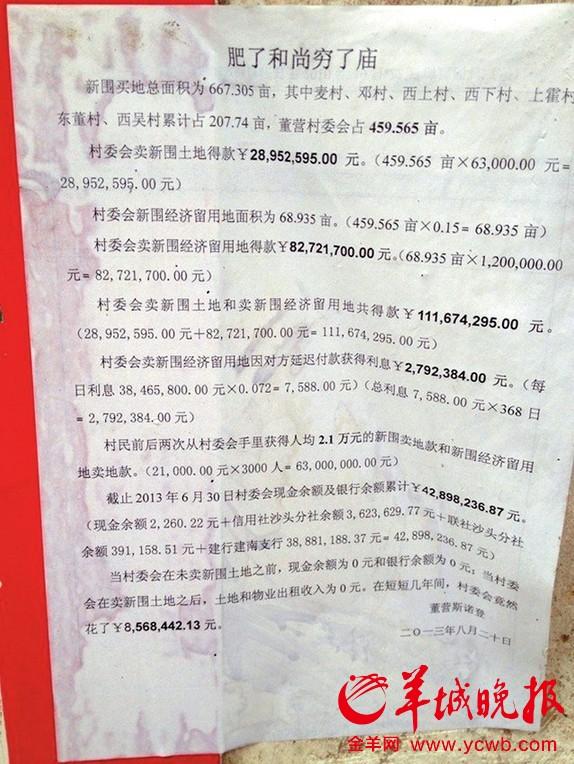 肥了和尚穷了庙
新围买地总面积为 667.305 亩，其中麦村、邓村、西上村、西下村、上霍村
东董村、西吴村累计占 207.74 亩，董营村委会占 459.565 亩。
村委会卖新围土地得款￥28,952,595.00 元。（459.565 亩×63,000.00 元=
28,952,595.00 元）
村委会新围经济留用地面积为 68.935 亩。（459.565 亩×0.15= 68.935 亩）
村委会卖新围经济留用地得款￥82,721,700.00 元。（68.935 亩×1,200,000.00
元= 82,721,700.00 元）
村委会卖新围土地和卖新围经济留用地共得款￥111,674,295.00 元。
（28,952,595.00 元＋82,721,700.00 元= 111,674,295.00 元）
村委会卖新围经济留用地因对方延迟付款获得利息￥2,792,384.00 元。（每
日利息 38,465,800.00 元×0.072= 7,588.00 元）（总利息 7,588.00 元×368 日
= 2,792,384.00 元）
村民前后两次从村委会手里获得人均 2.1 万元的新围卖地款和新围经济留用
地卖地款。（21,000.00 元×3000 人= 63,000,000.00 元）
截止 2013 年 6 月 30 日村委会现金余额及银行余额累计￥42,898,236.87 元。
（现金余额 2,260.22 元＋信用社沙头分社余额 3,623,629.77 元＋联社沙头分社
余额 391,158.51 元＋建行建南支行 38,881,188.37 元= 42,898,236.87 元）
当村委会在未卖新围土地之前，现金余额为 0 元和银行余额为 0 元；当村委
会在卖新围土地之后，土地和物业出租收入为 0 元。在短短几年间，村委会竟然
花了￥8,568,442.13 元。
董营斯诺登
二〇一三年八月二十日
羊城晚报
金羊网 www.ycwb.com